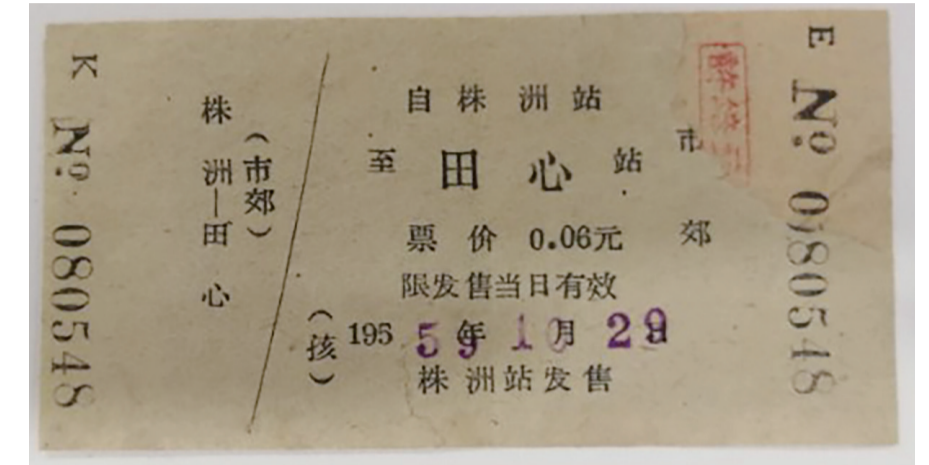 K № 080548
株洲—田心
（市郊）
自株洲站
至田心站
市郊
票价 0.06元
限发售当日有效
195 59年10月29日
（孩）
株洲站发售
E № 080548